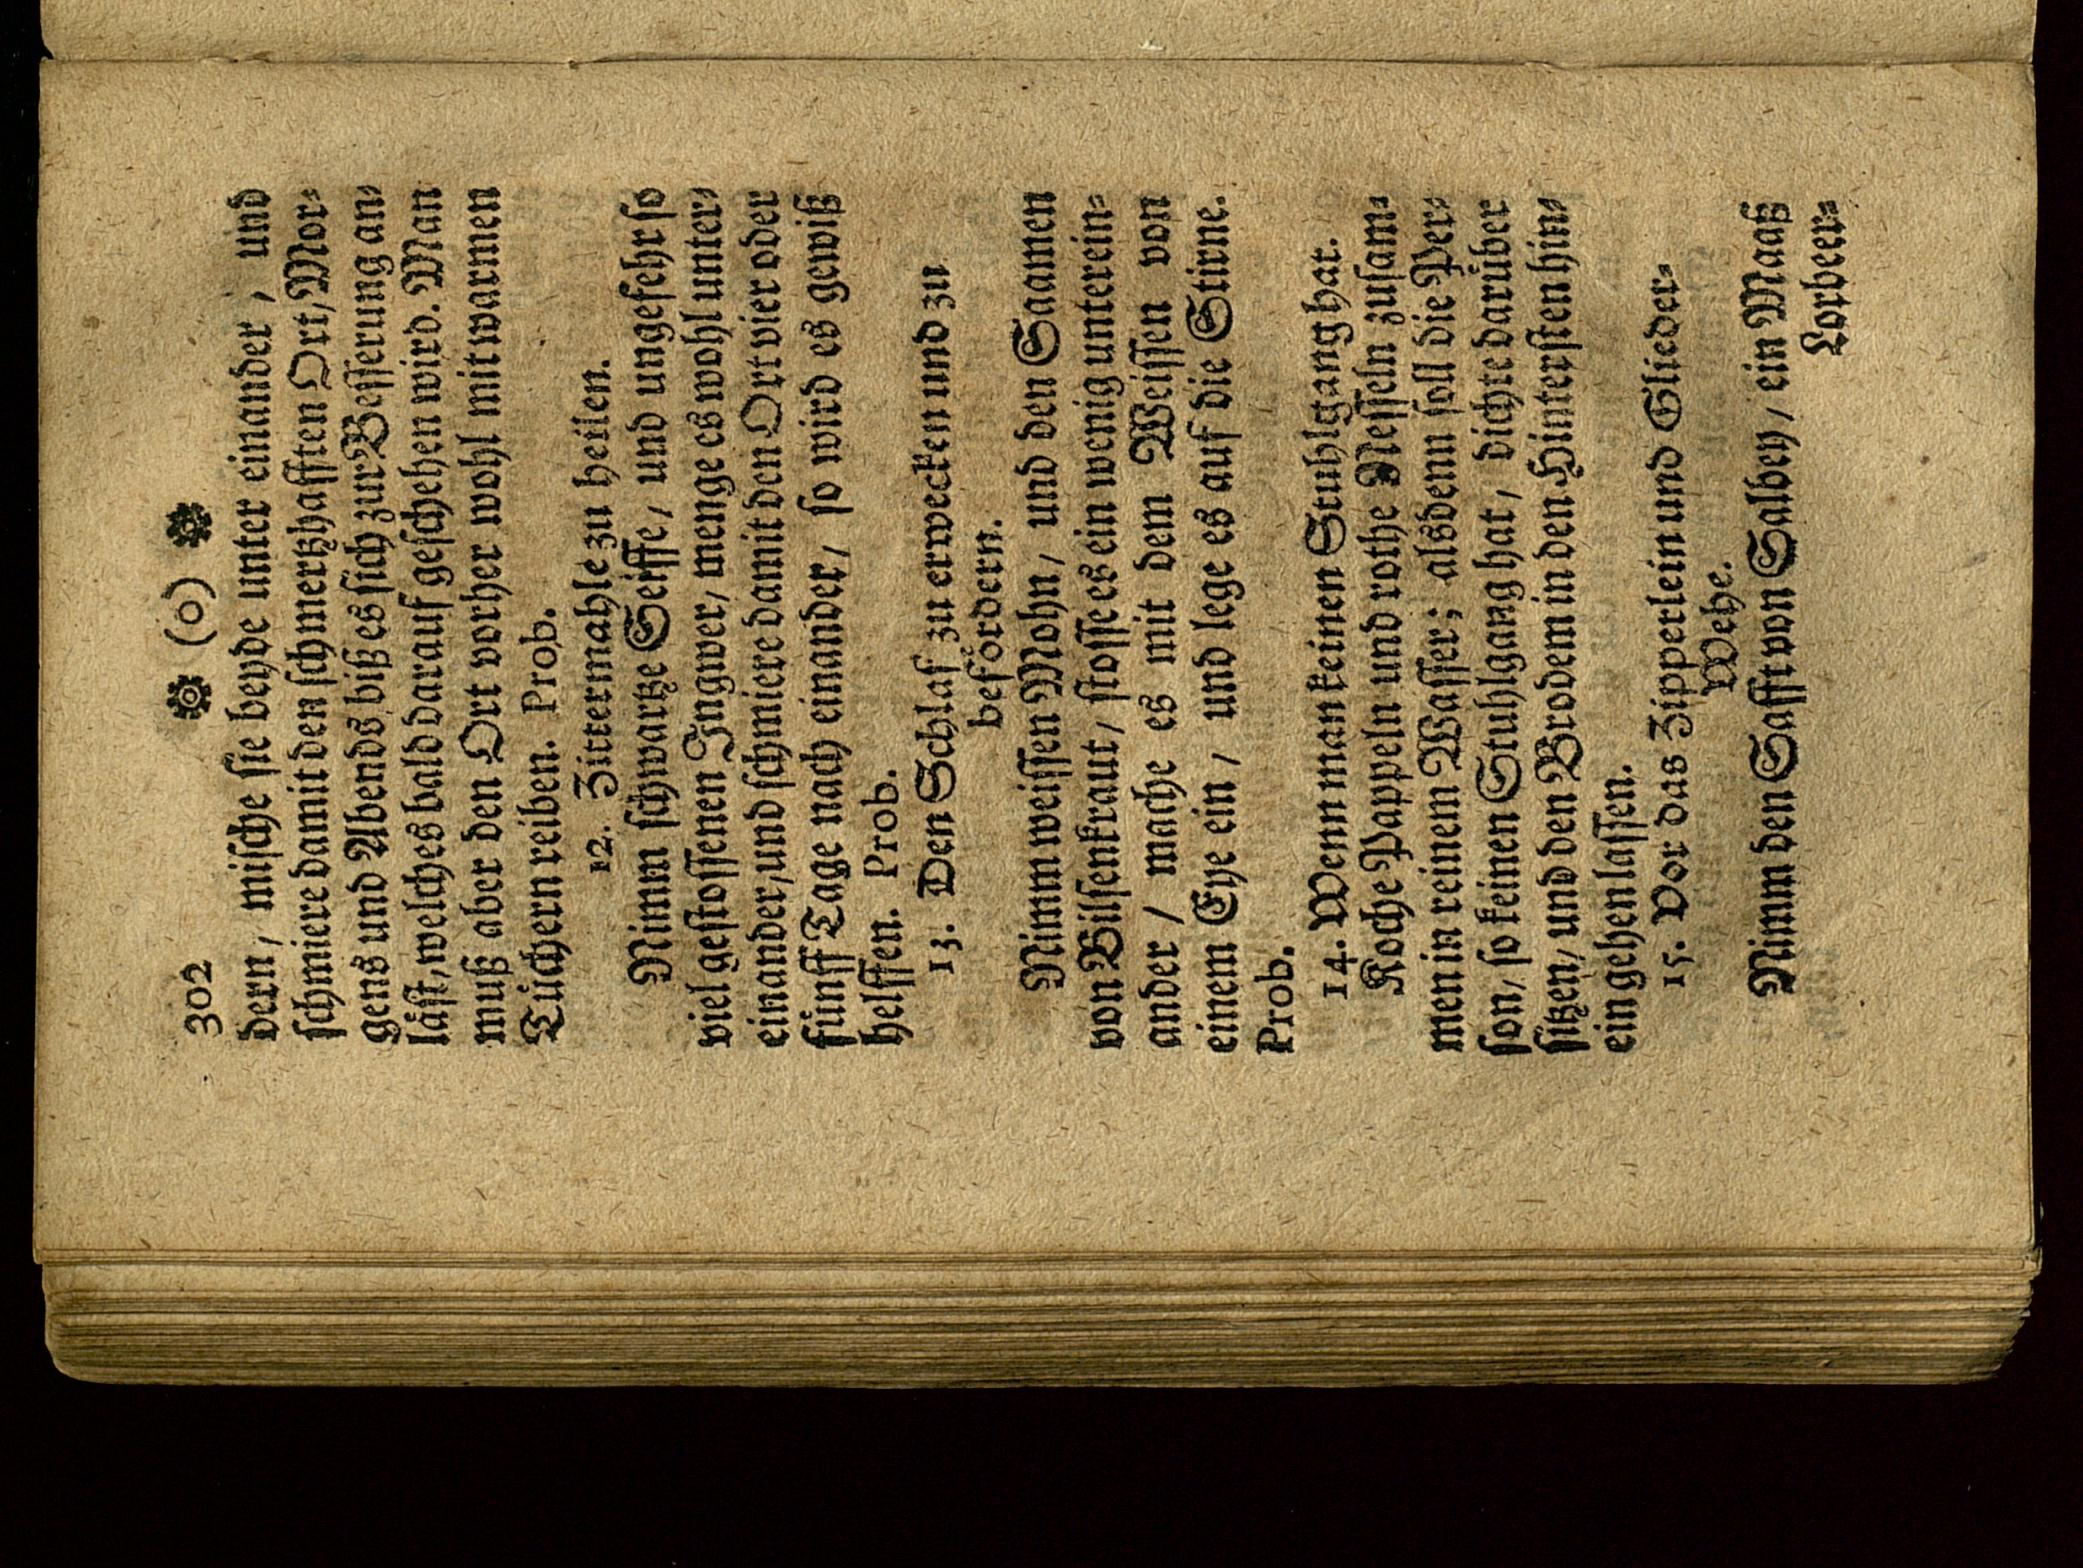 302 ❁ (o) ❁
dern / mische sie beyde unter einander / und
schmiere damit den schmertzhafften Ort / Mor⸗
gens und Abends / biß es sich zur Besserung an⸗
läst / welches bald darauf geschehen wird. Man
muß aber den Ort vorher wohl mit warmen
Tüchern reiben. Prob.
12. Zittermahle zu heilen.
Nimm schwartze Seiffe / und ungefehr so
viel gestossenen Ingwer / menge es wohl unter⸗
einander / und schmiere damit den Ort vier oder
fünff Tage nach einander / so wird es gewiß
helffen. Prob.
13. Den Schlaf zu erwecken und zu
befördern.
Nimm weissen Mohn / und den Saamen
von Bilsenkraut / stosse es ein wenig unterein⸗
ander / mache es mit dem Weissen von
einem Eye ein / und lege es auf die Stirne.
Prob.
14. Wenn man keinen Stuhlgang hat.
Koche Pappeln und rothe Nesseln zusam⸗
men in reinem Wasser; alsdenn soll die Per⸗
son / so keinen Stuhlgang hat / dichte darüber
sitzen / und den Brodem in den Hintersten hin⸗
ein gehen lassen.
15. Vor das Zipperlein und Glieder⸗
Wehe.
Nimm den Safft von Salbey / ein Maaß
Lorbeer⸗